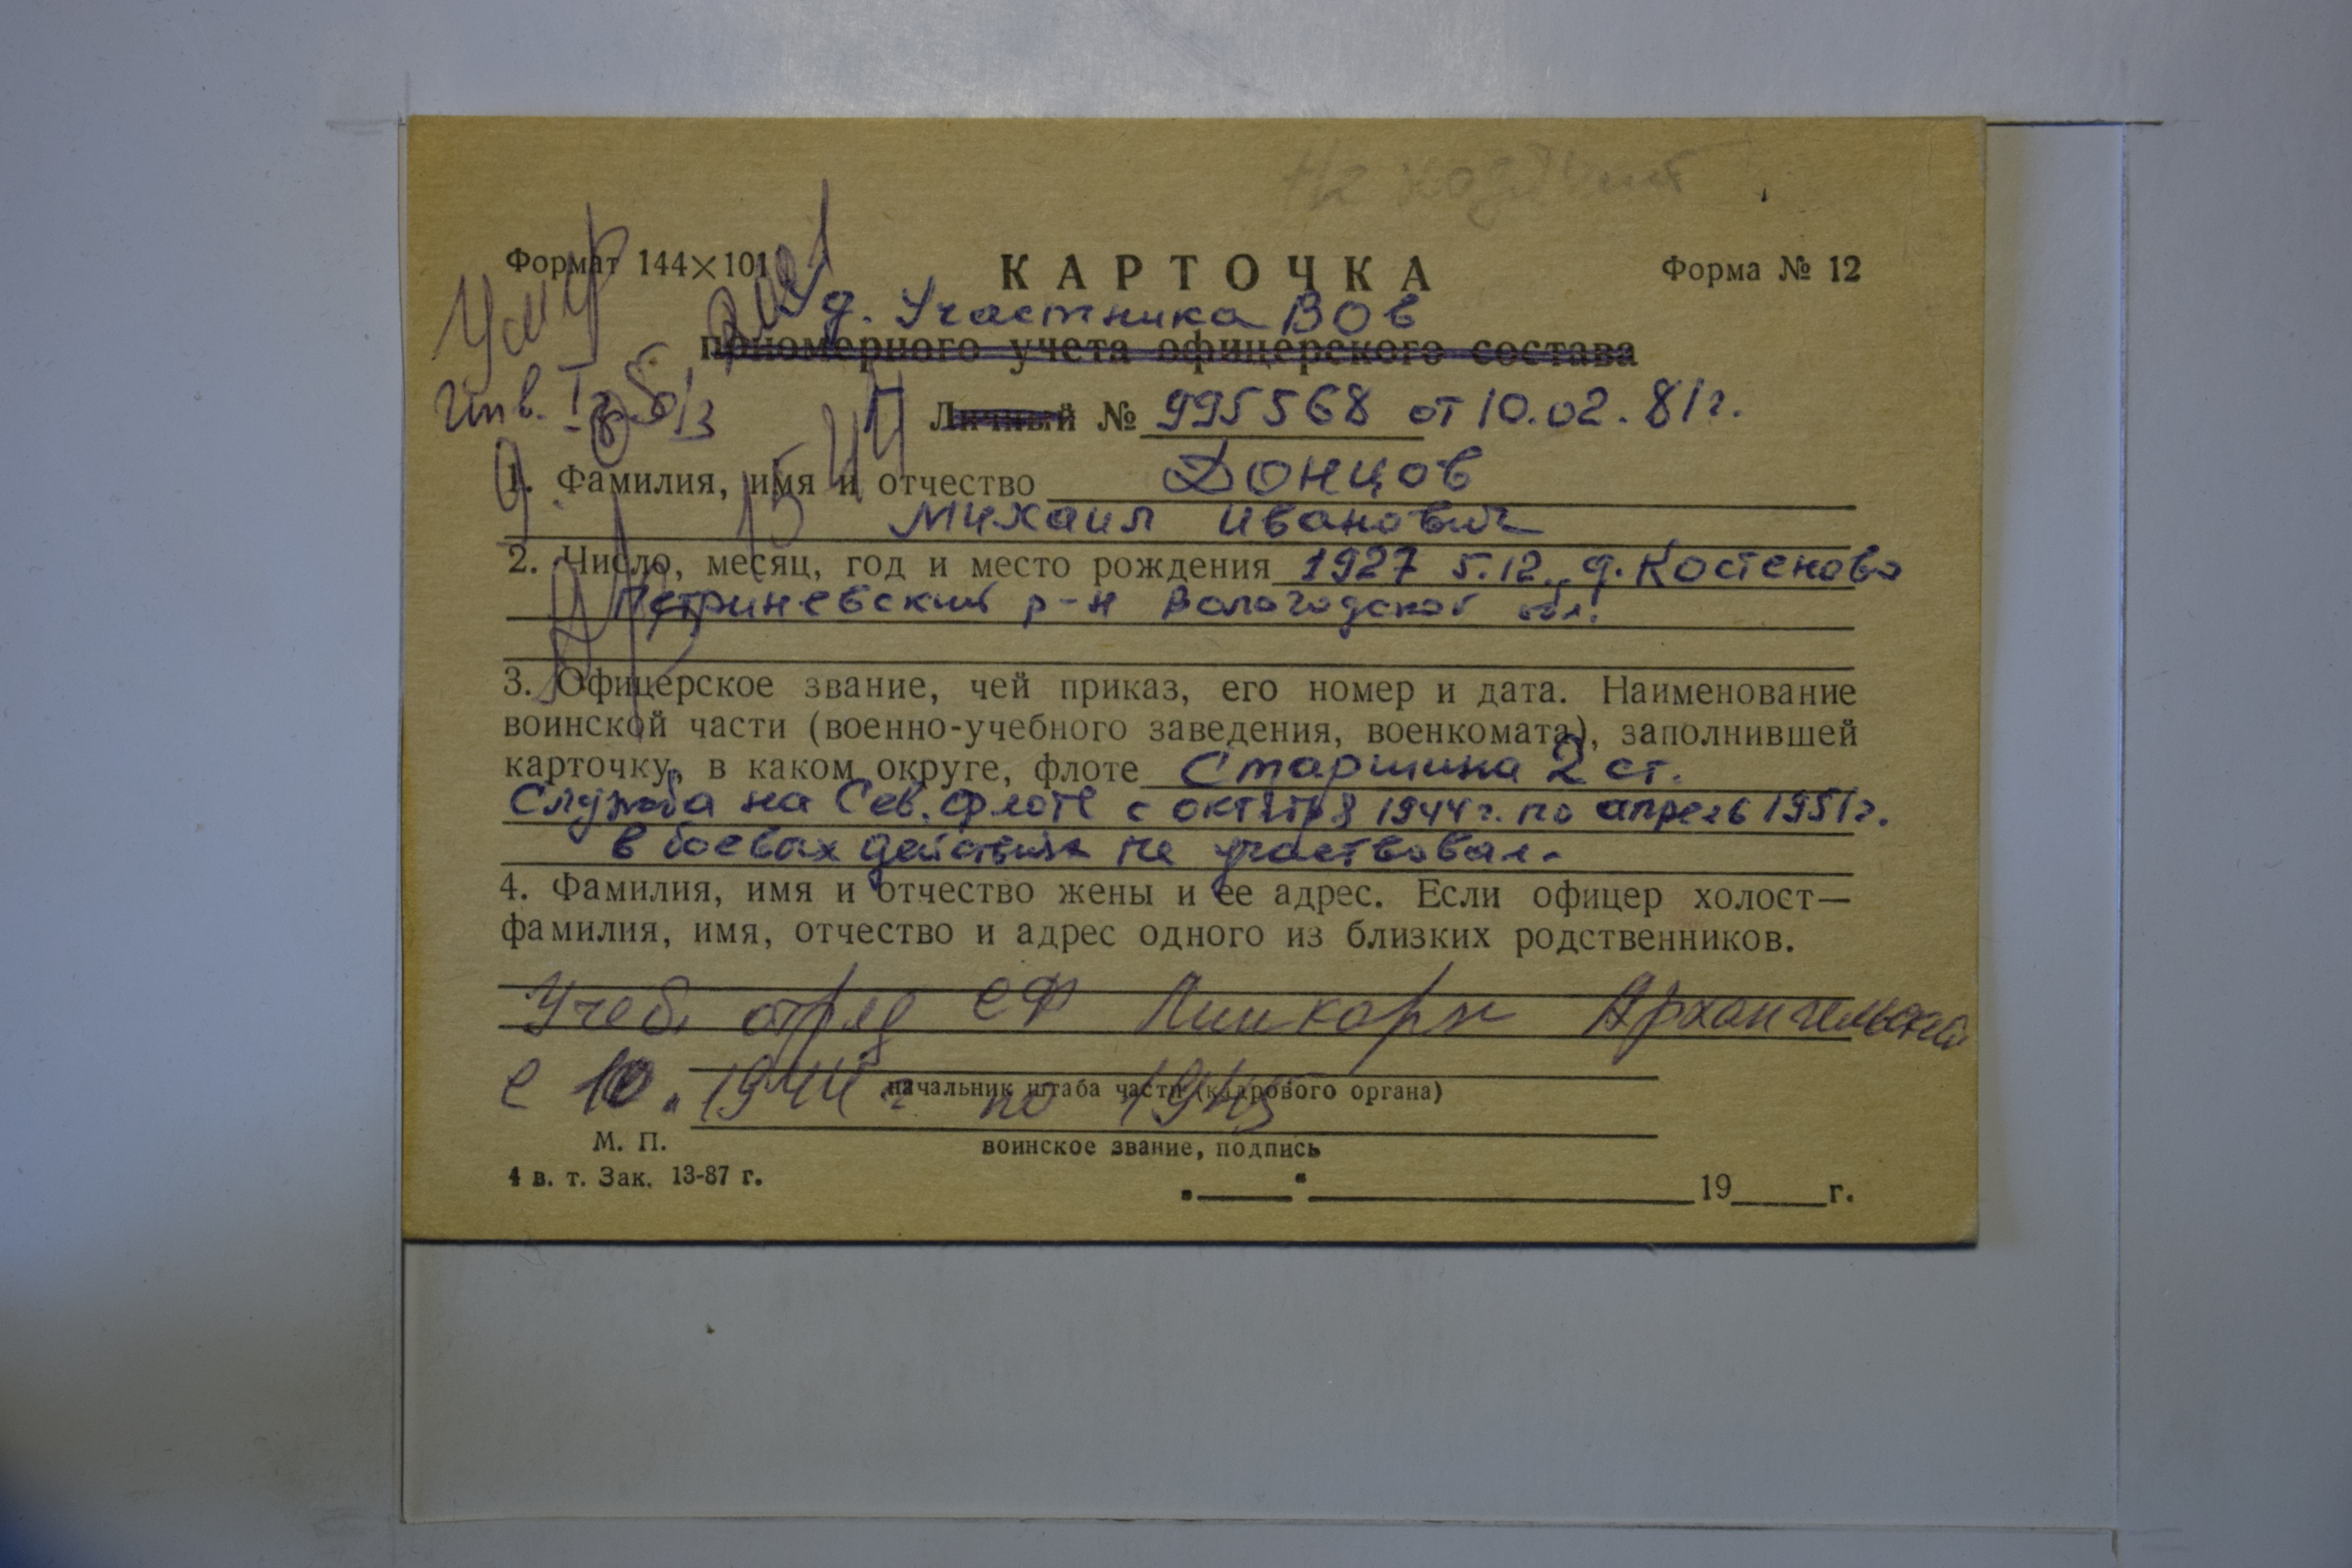 Формат 144×101
КАРТОЧКА
Форма № 12
Умер
Уд. Участника ВОв
пономерного учета офицерского состава
Инв. I гр. б/з
Личный № 995568 от 10.02.81г.
1. Фамилия, имя и отчество Донцов
Михаил Иванович
2. Число, месяц, год и место рождения 1927 5.12. д. Костеново
Петриневский р-н Вологодской обл.
3. Офицерское звание, чей приказ, его номер и дата. Наименование
воинской части (военно-учебного заведения, военкомата), заполнившей
карточку, в каком округе, флоте Старшина 2 ст.
Служба на Сев. флоте с октября 1944г. по апрель 1951г.
в боевых действиях не участвовал.
4. Фамилия, имя и отчество жены и ее адрес. Если офицер холост—
фамилия, имя, отчество и адрес одного из близких родственников.
Учеб. отряд СФ Архангельска
с 10.1944 г. по 1945
начальник штаба части (кадрового органа)
М. П.
воинское звание, подпись
4 в. т. Зак. 13-87 г.
19 г.